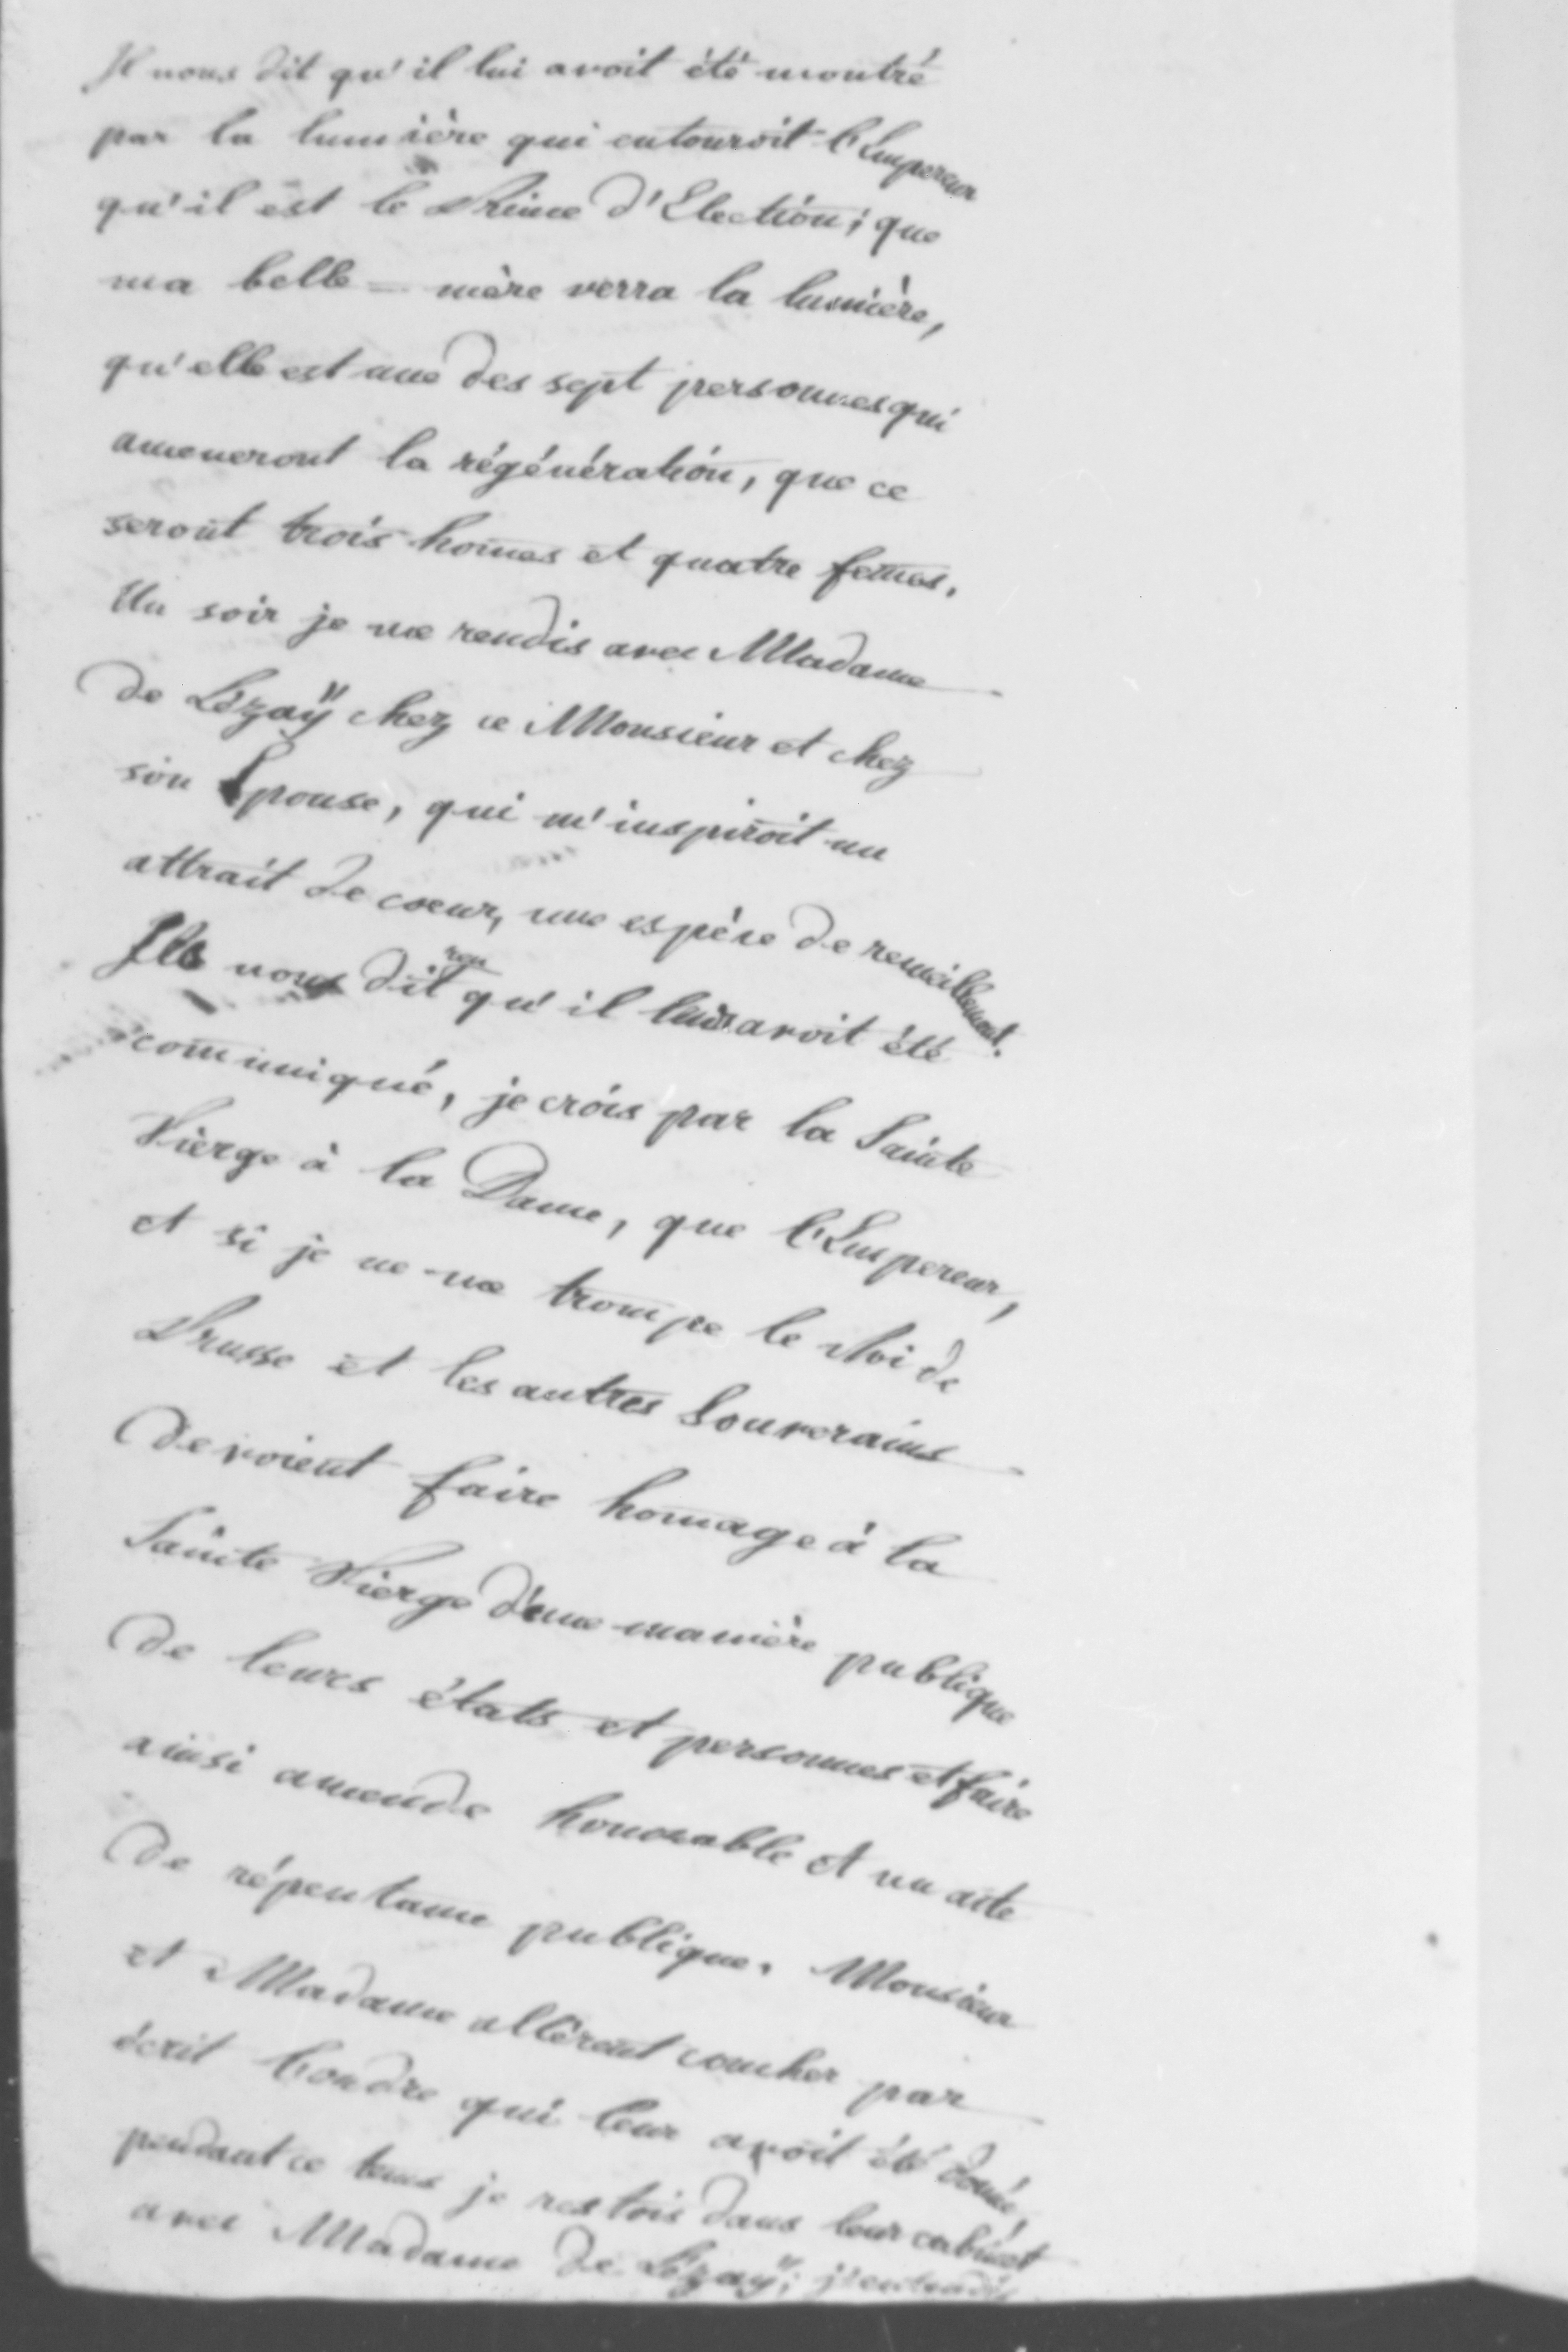 Il nous dit qu'il lui avoit été montré
par la lumière qui entouroit l'Empereur
qu'il est le Prince d'Election; que
ma belle-mère verra la lumière,
qu'elle est une des sept personnes qui
ameneront la régénération, que ce
seront trois hom̄es et quatre fem̄es.
Un soir je me rendis avec Madame
de Lézaÿ chez ce Monsieur et chez
son Epouse, qui m'inspiroit un
attrait de coeur, une espèce de recueillement.
Ils nous dirent qu'il leur avoit été
communiqué, je crois par la Sainte
Vierge à la Dame, que l'Empereur,
et si je ne me trompe le Roi de
Prusse et les autres Souverains
devoient faire hom̄age à la
Sainte Vierge d'une manière publique
de leurs états et personnes et faire
ainsi amende honorable et un acte
de répentance publique. Monsieur
et Madame allèrent coucher par
écrit l'ordre qui leur avoit été don̄é,
pendant ce tems je restois dans leur cabinet
avec Madame de Lézaÿ; j'entendis